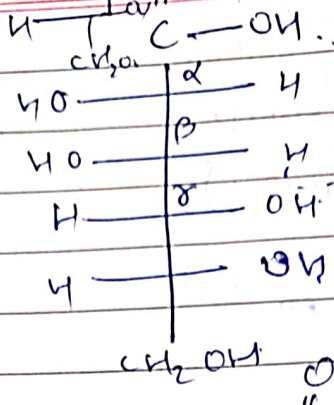 H
C — OH.
CH₂O
α
HO — H
β
HO — H
γ
H — OH
H — OH
CH₂OH
O